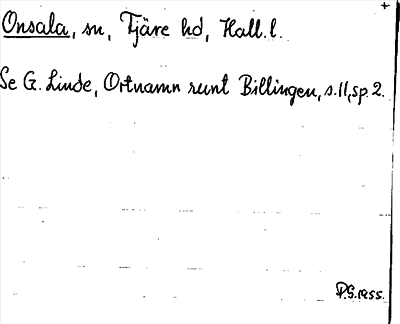 Onsala, sn, Fjäre hd, Hall.l.
Se G. Linde, Ortnamn runt Billingen, s.11, sp.2.
P.G.1955.